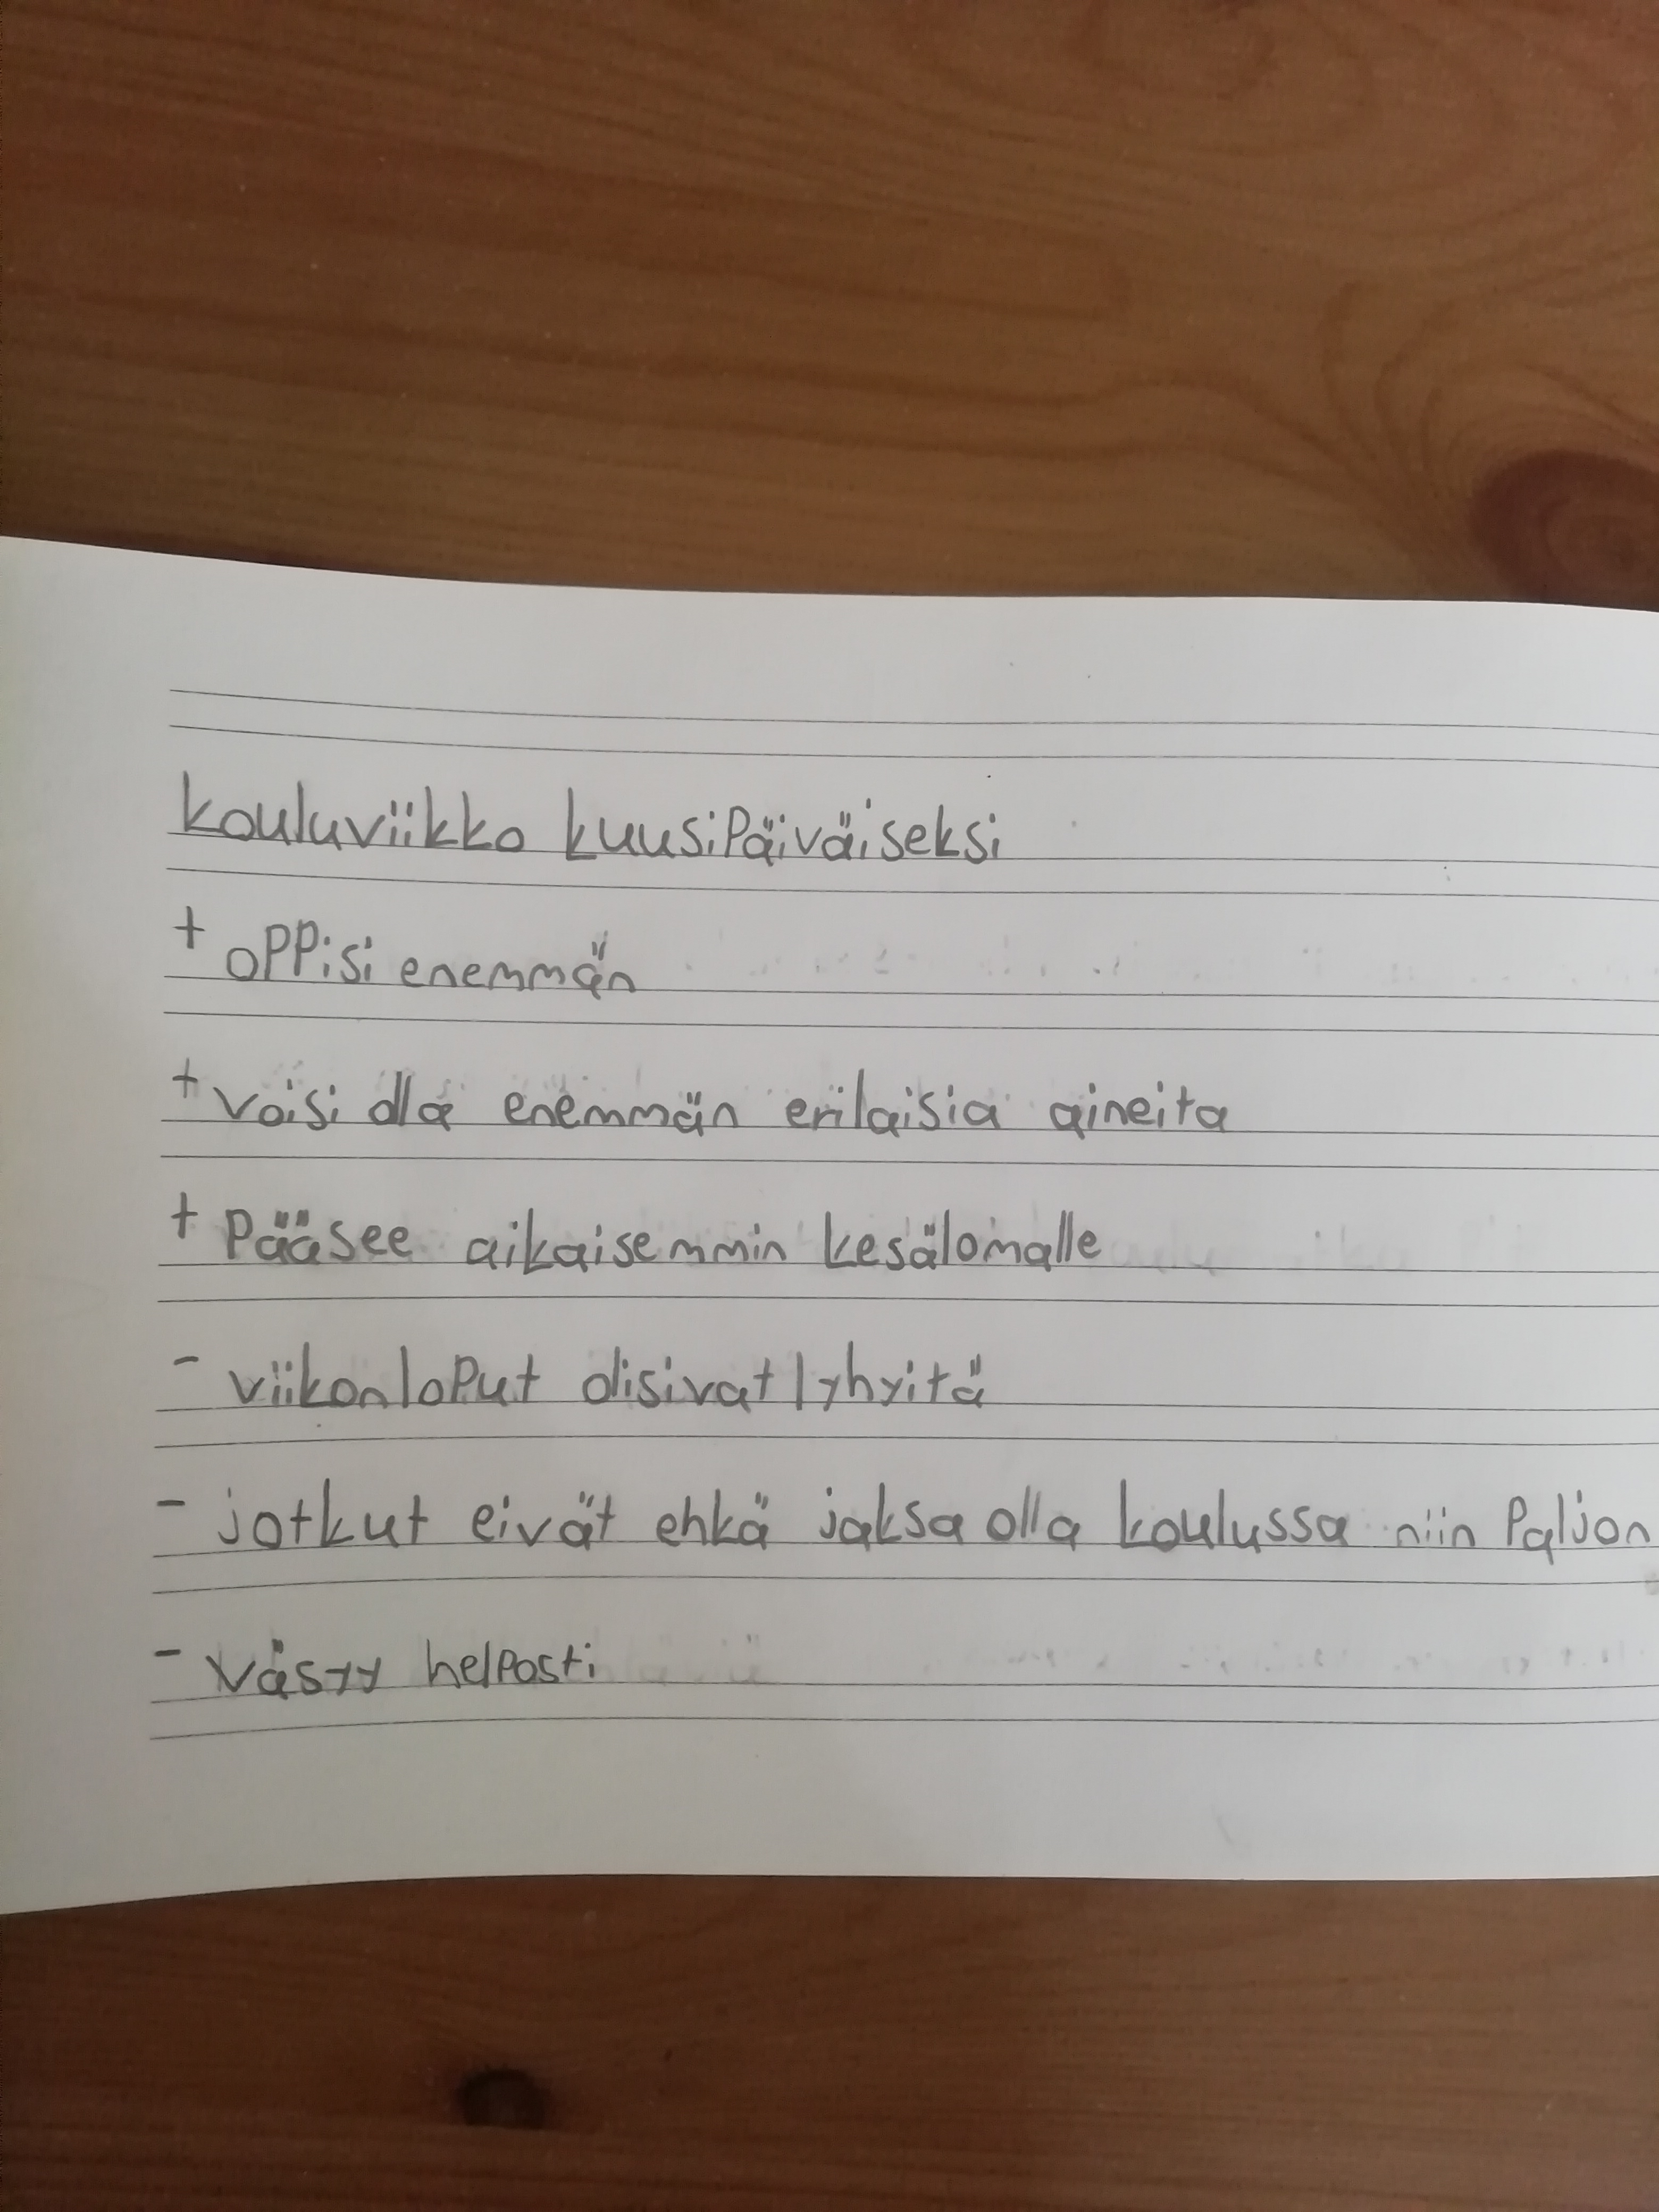 kouluviikko kuusipäiväiseksi
+ oppisi enemmän
+ voisi olla enemmän erilaisia aineita
+ Pääsee aikaisemmin kesälomalle
- viikonloput olisivat lyhyitä
- jotkut eivät ehkä jaksa olla koulussa niin paljon
- väsyy helposti